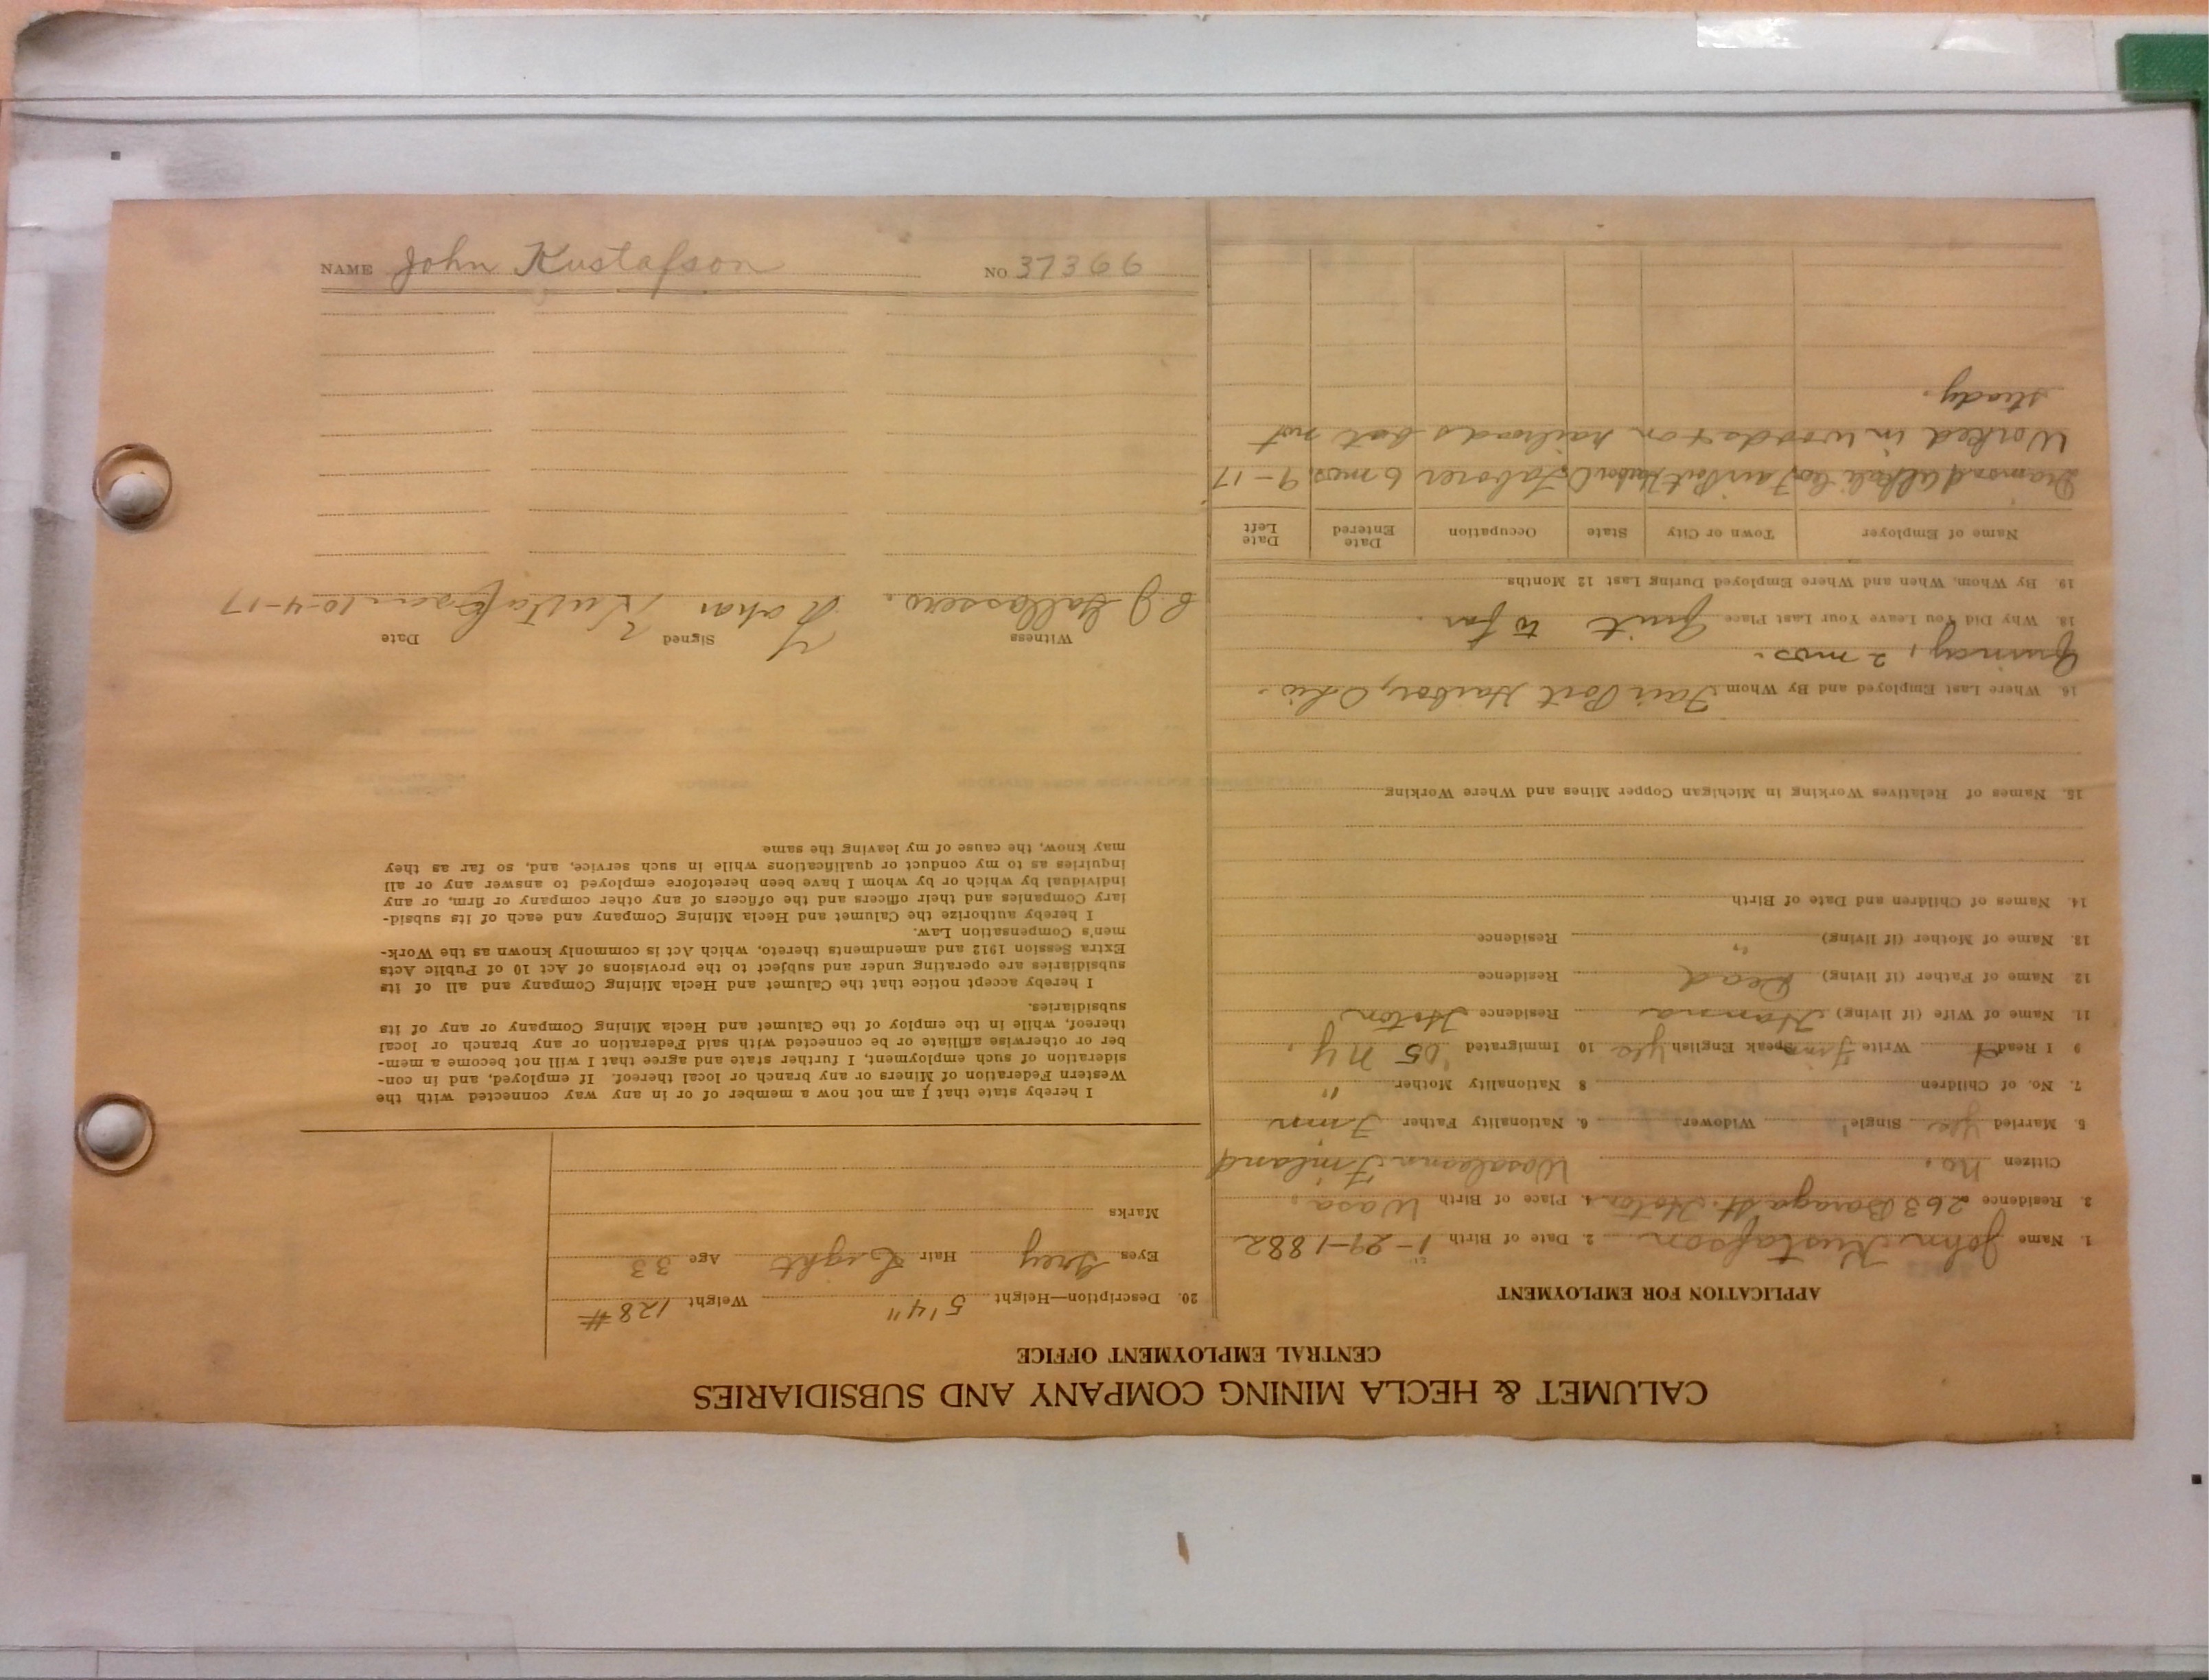 CALUMET & HECLA MINING COMPANY AND SUBSIDIARIES
CENTRAL EMPLOYMENT OFFICE
APPLICATION FOR EMPLOYMENT
1. Name John Kustafson 2. Date of Birth 1-29-1882
3. Residence 263 Baraga St. Hoton 4. Place of Birth Wasa,
Citizen No. Wasalaani Finland
5. Married Yes Single Widower 6. Nationality Father Finn
7. No. of Children 8 Nationality Mother "
9 I Read Write Finn Speak English Yes 10 Immigrated '05 NY.
11. Name of Wife (if living) Hanna Residence Hoton
12. Name of Father (if living) Dead Residence
13. Name of Mother (if living) " Residence
14. Names of Children and Date of Birth
15. Names of Relatives Working in Michigan Copper Mines and Where Working
16. Where Last Employed and By Whom Fair Port Harbor, Ohio.
Quincy, 2 mos.
18. Why Did You Leave Your Last Place Quit to far.
19. By Whom, When and Where Employed During Last 12 Months
Name of Employer Town or City State Occupation Date Entered Date Left
Diamond Alkali Co Fair Port Harbor O Laborer 6 mos. 9-17
Worked in woods & on railroads but not
steady.
20. Description—Height 5'4" Weight 128#
Eyes Grey Hair Light Age 33
Marks
I hereby state that I am not now a member of or in any way connected with the
Western Federation of Miners or any branch or local thereof. If employed, and in con-
sideration of such employment, I further state and agree that I will not become a mem-
ber or otherwise affiliate or be connected with said Federation or any branch or local
thereof, while in the employ of the Calumet and Hecla Mining Company or any of its
subsidiaries.
I hereby accept notice that the Calumet and Hecla Mining Company and all of its
subsidiaries are operating under and subject to the provisions of Act 10 of Public Acts
Extra Session 1912 and amendments thereto, which Act is commonly known as the Work-
men's Compensation Law.
I hereby authorize the Calumet and Hecla Mining Company and each of its subsid-
iary Companies and their officers and the officers of any other company or firm, or any
individual by which or by whom I have been heretofore employed to answer any or all
inquiries as to my conduct or qualifications while in such service, and, so far as they
may know, the cause of my leaving the same
Witness Signed Date
Kustafson 10-4-17
NAME John Kustafson NO 37366